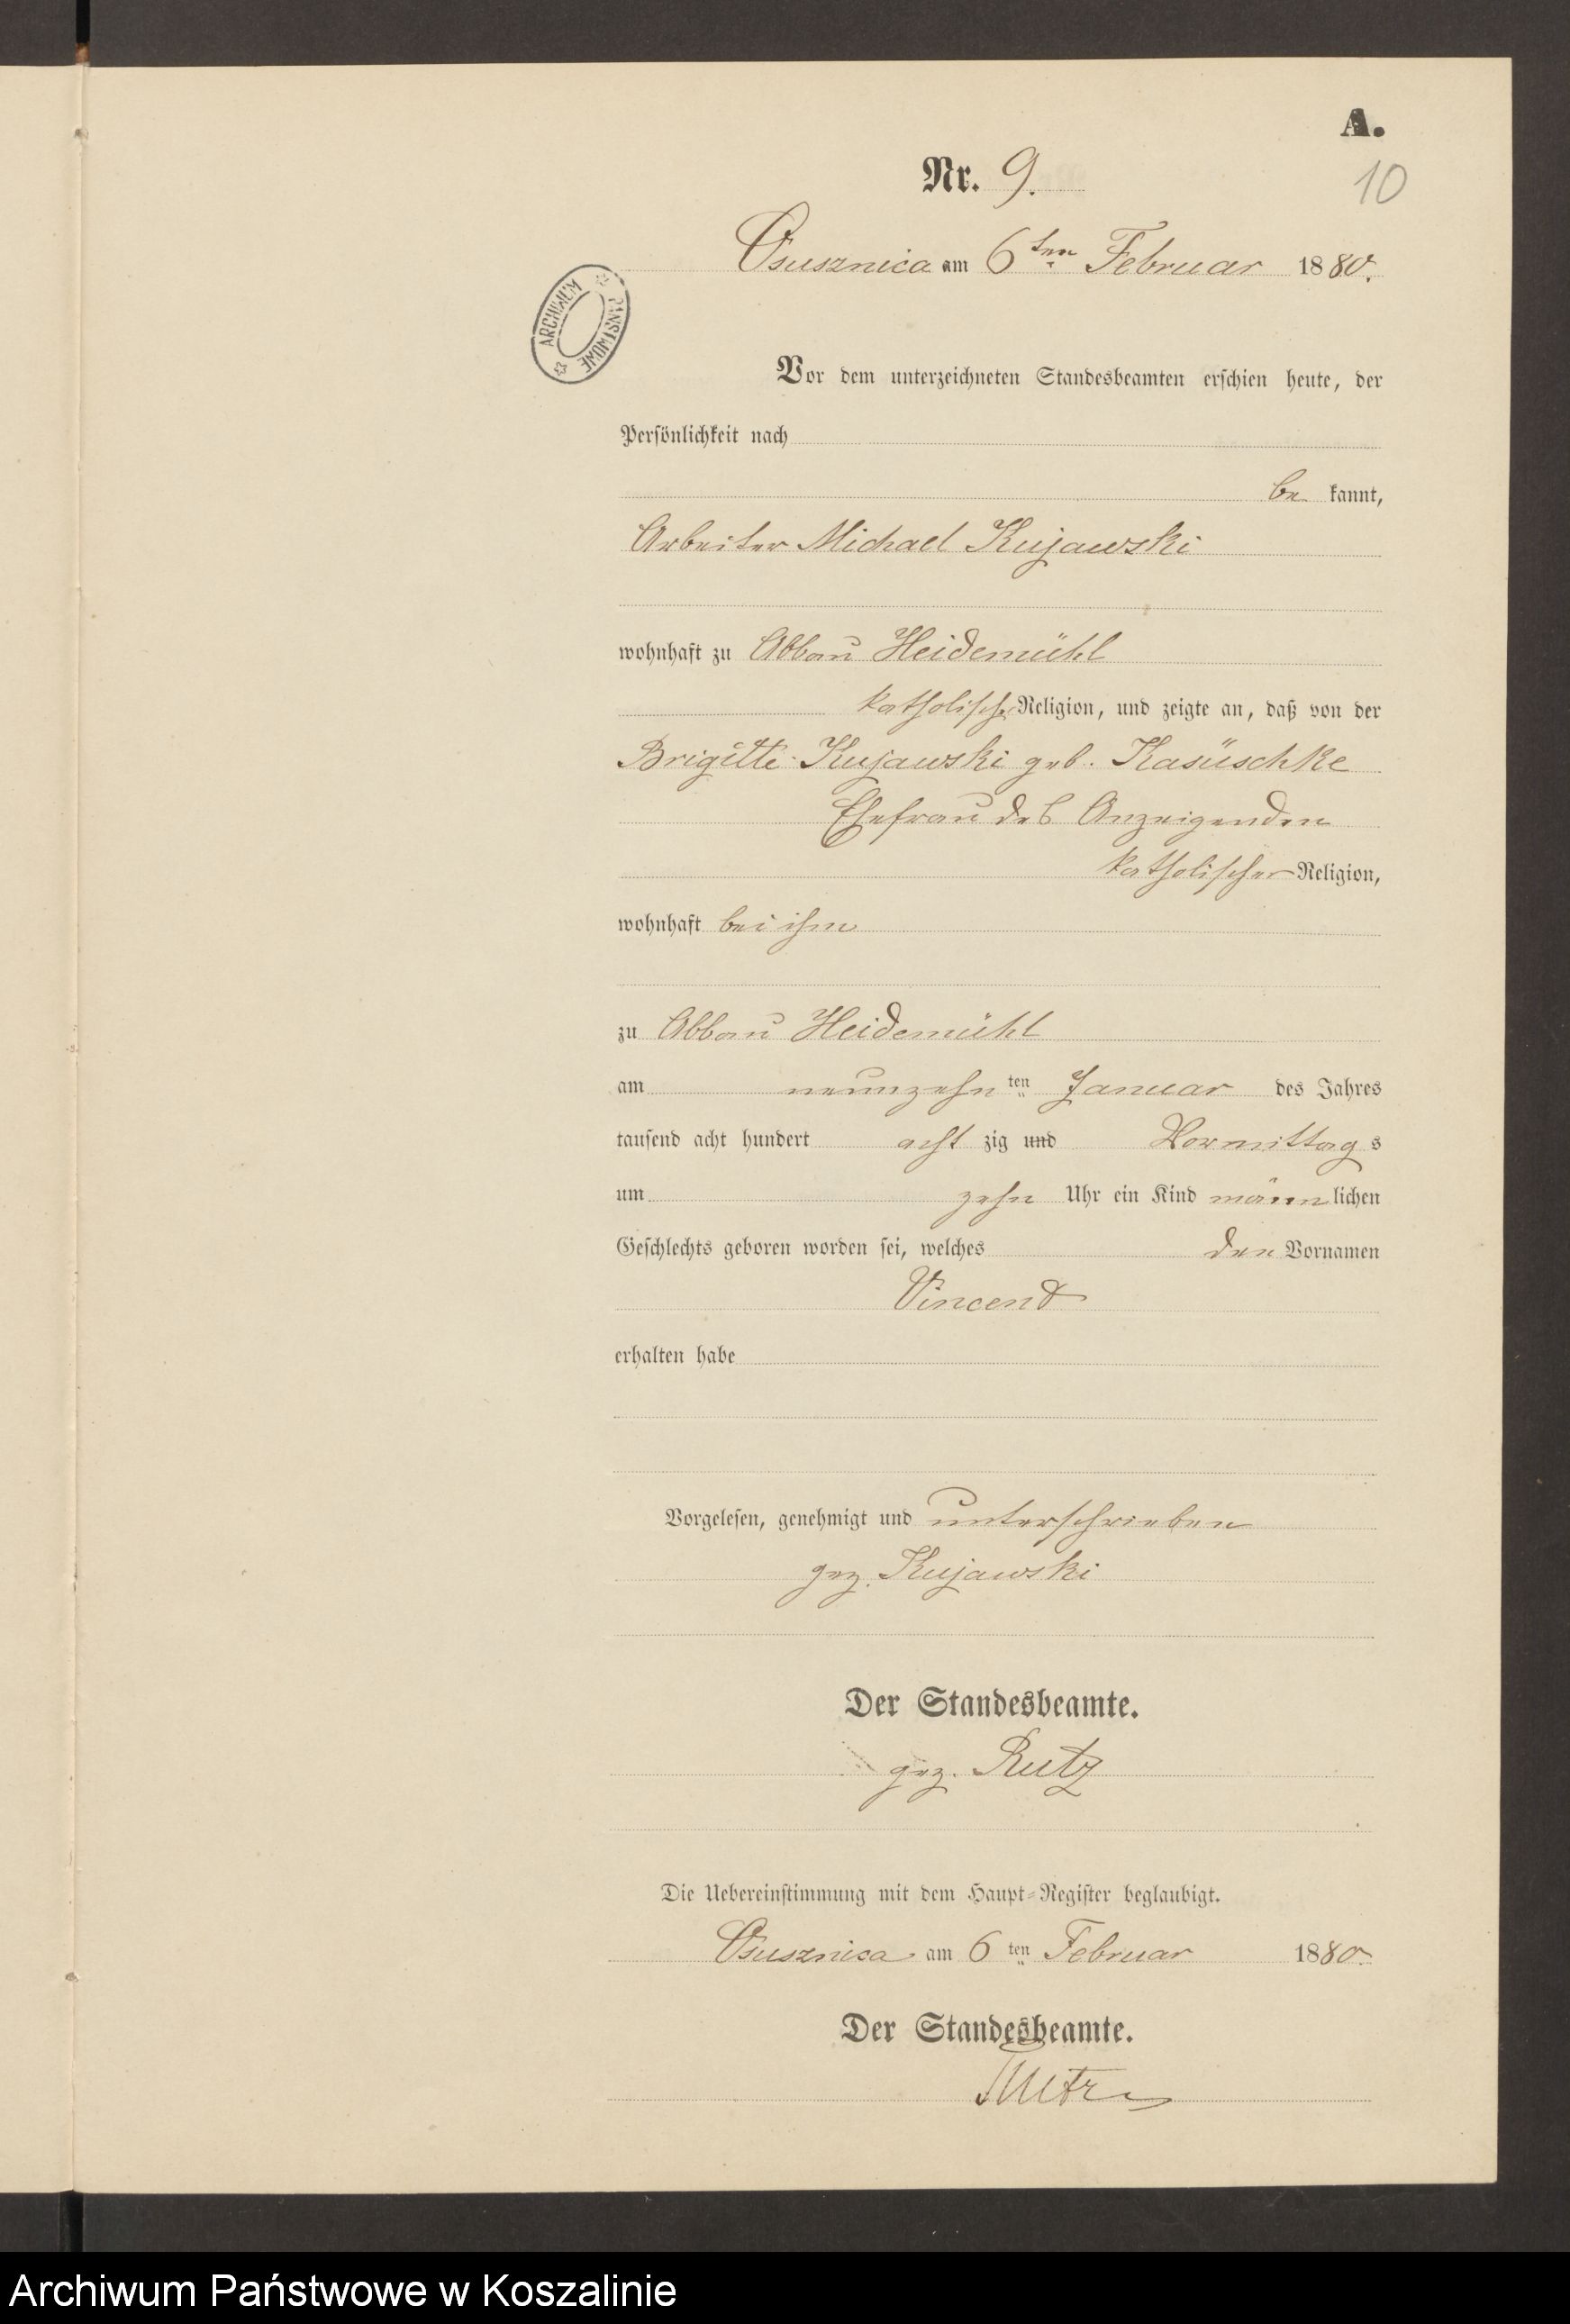 A.
Nr. 9.
10
Osusznica am 6ten Februar 1880.
ARCHIWUM PAŃSTWOWE
Vor dem unterzeichneten Standesbeamten erschien heute, der
Persönlichkeit nach
be kannt,
Arbeiter Michael Kujawski
wohnhaft zu Abbau Heidemühl
katholischer Religion, und zeigte an, daß von der
Brigitte Kujawski geb. Kasüschke
Ehefrau des Anzeigenden
katholischer Religion,
wohnhaft bei ihm
zu Abbau Heidemühl
am neunzehn ten Januar des Jahres
tausend acht hundert acht zig und Vormittag s
um zehn Uhr ein Kind männ lichen
Geschlechts geboren worden sei, welches den Vornamen
Vincend
erhalten habe
Vorgelesen, genehmigt und unterschrieben
gez. Kujawski
Der Standesbeamte.
gez. Rutz
Die Uebereinstimmung mit dem Haupt-Register beglaubigt.
Osusznica am 6 ten Februar 1880.
Der Standesbeamte.
Archiwum Państwowe w Koszalinie